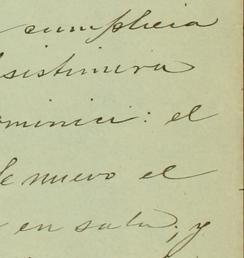 cumplicia
sistimera
ominici: el
de nuevo el
en sala; y